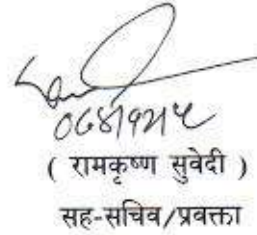 ( रामकृष्ण सुवेदी )
सह-सचिव/प्रवक्ता